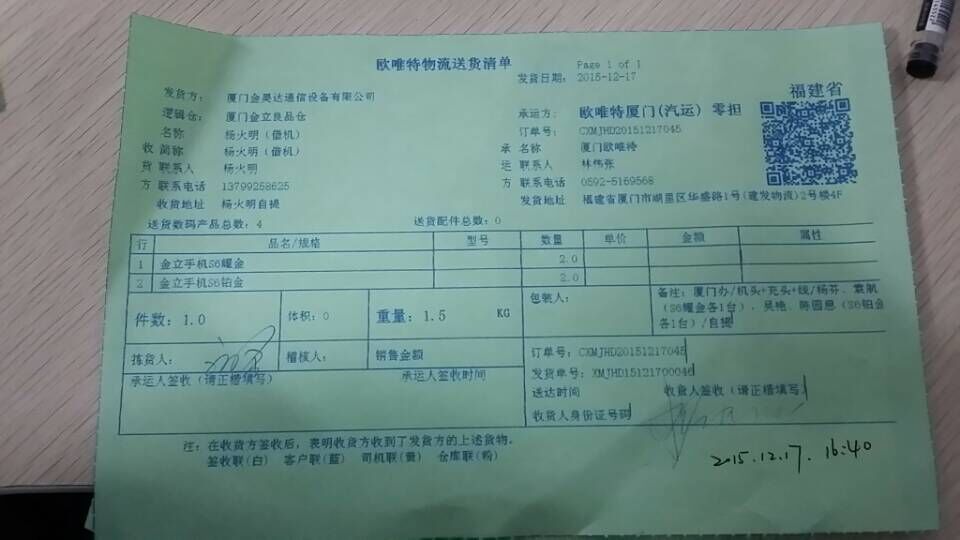 欧唯特物流送货清单
Page 1 of 1
发货日期: 2015-12-17
福建省
发货方: 厦门金昊达通信设备有限公司
逻辑仓: 厦门金立良品仓
承运方: 欧唯特厦门(汽运) 零担
订单号: CXMJHD20151217045
名称 杨火明(借机)
承 名称 厦门欧唯特
收 简称 杨火明(借机)
运 联系人 林伟张
货 联系人 杨火明
方 联系电话 0592-5169568
方 联系电话 13799258625
发货地址 福建省厦门市湖里区华盛路1号(建发物流)2号楼4F
收货地址 杨火明自提
送货数码产品总数: 4
送货配件总数: 0
行 品名/规格 型号 数量 单价 金额 属性
1 金立手机S6耀金 2.0
2 金立手机S6铂金 2.0
件数: 1.0 体积: 0 重量: 1.5 KG
包装人:
备注: 厦门办/机头+充头+线/杨芬、袁航
(S6耀金各1台)、吴艳、陈园恩(S6铂金
各1台)/自提
拣货人: 稽核人: 销售金额
承运人签收(请正楷填写) 承运人签收时间
订单号: CXMJHD20151217045
发货单号: XMJHD1512170004
送达时间 收货人签收(请正楷填写)
收货人身份证号码
注: 在收货方签收后, 表明收货方收到了发货方的上述货物。
签收联(白) 客户联(蓝) 司机联(黄) 仓库联(粉)
2015.12.17. 16:40